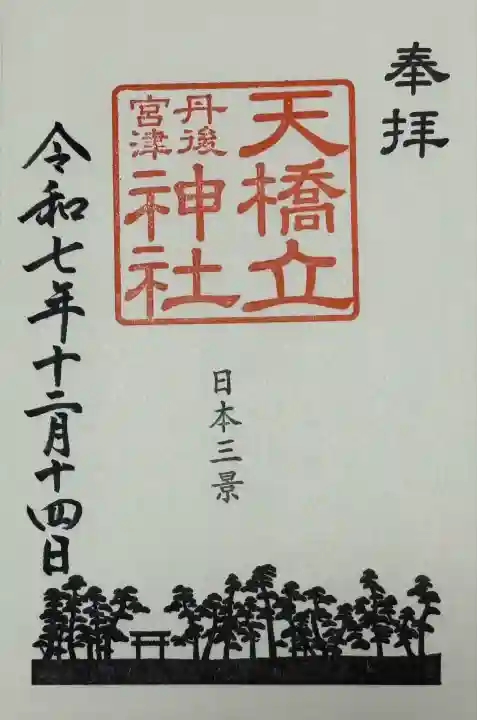 奉拝
天橋立
丹後
宮津
神社
日本三景
令和七年十二月十四日